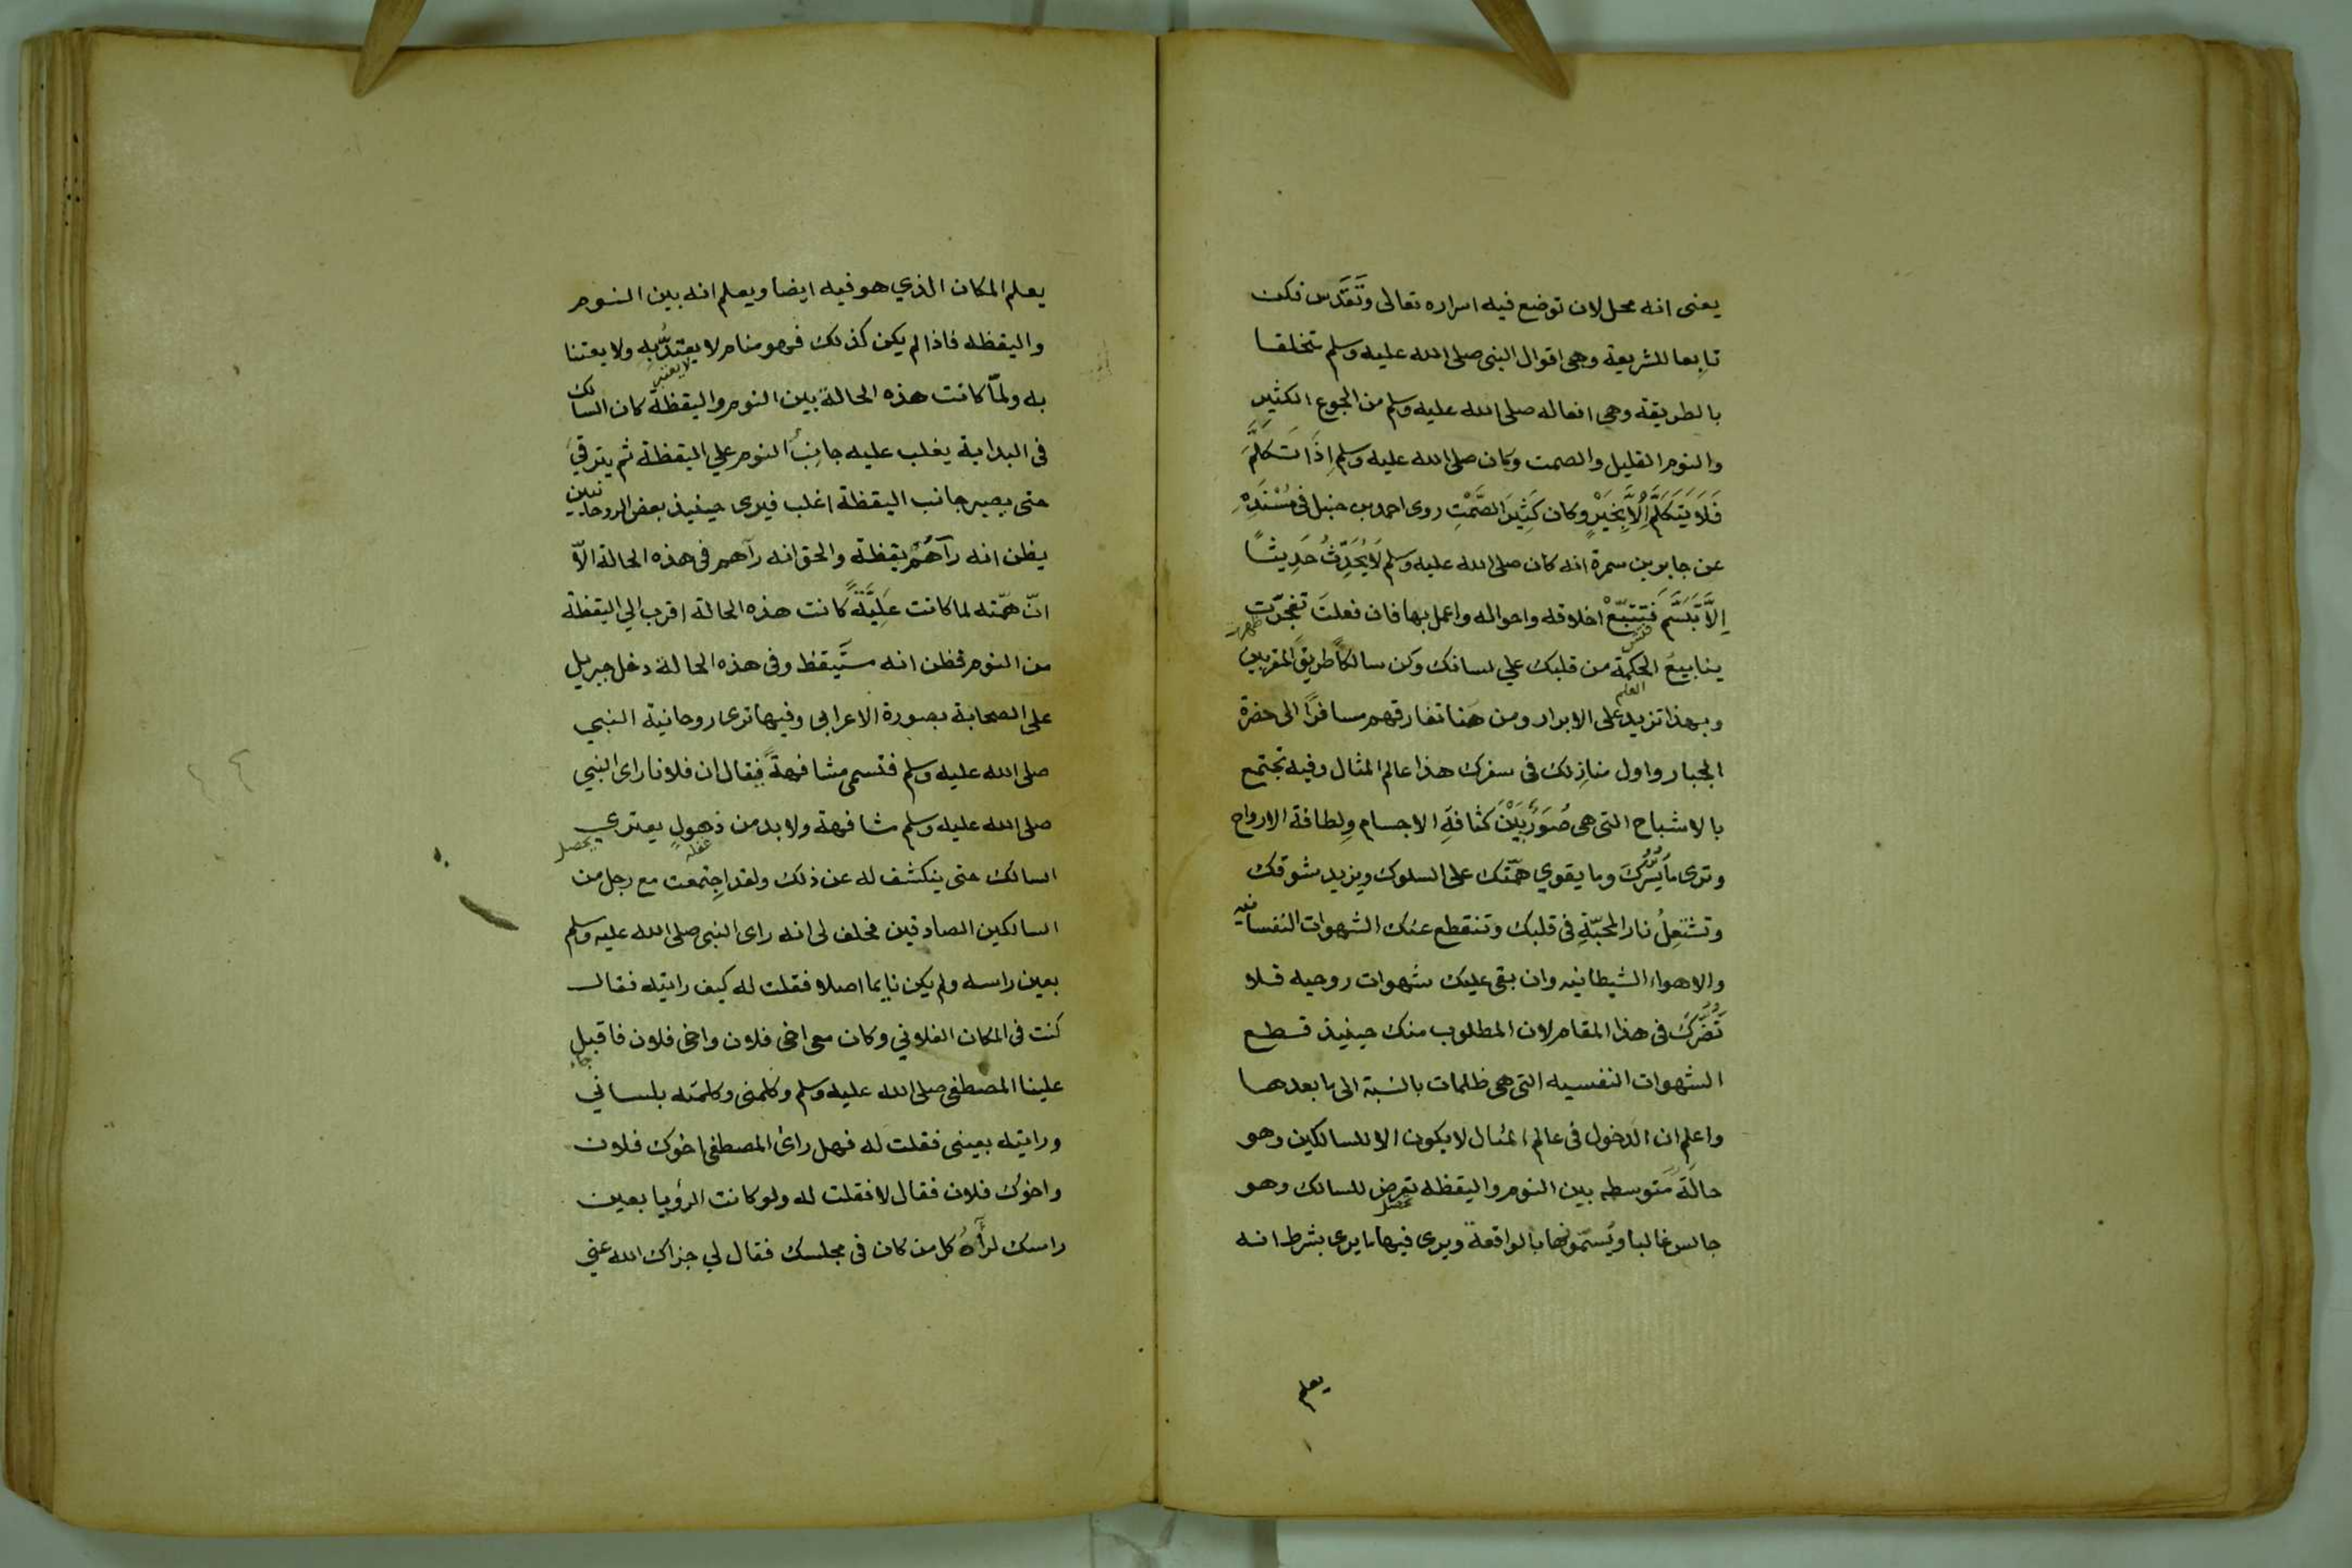 يعنى انه محل لان توضع فيه اسراره تعالى وتَقَدَّس فكن
تابعا للشريعة وهى اقوال النبى صلى الله عليه وسلم متخلقا
بالطريقة وهى افعاله صلى الله عليه وسلم من الجوع الكثير
والنوم القليل والصمت وكان صلى الله عليه وسلم اِذَا تَكَلَّمَ
فَلَا يَتَكَلَّمُ اِلَّا بِخَيْرٍ وكان كَثِيرَ الصَّمْتِ روى احمد بن حنبل فى مُسْنَدِهِ
عن جابر بن سمرة انه كان صلى الله عليه وسلم لَا يُحَدِّثُ حَدِيثًا
اِلَّا تَبَسَّمَ فَتَتَبَّعْ اخلاقه واحواله واعمل بها فان فعلتَ تفجّرت
فتش ظهرت
ينابيعُ الحكمة من قلبك علي لسانك وكن سالكًا طريق المقربين
العلم
وبهذا تزيد على الابرار ومن هَنا تفارقهم مسافرًا الى حضرة
الجبار واول منازِلك فى سفرك هذا عالم المثال وفيه تجتمع
بالاشباح التى هى صُوَرٌ بَيْنَ كثافةِ الاجسام ولِطافة الارواح
وترى ما يَسُرُّكَ وما يقوي همّتك على السلوك ويزيد شوقك
وتشتعِلُ نار المحبّةِ فى قلبك وتنقطع عنك الشهوات النفسانيه
والاهواء الشيطانيه وان بقى عليك شهوات روحيه فلا
تَضُرُّكَ فى هذا المقام لان المطلوب منك حينيذ قطع
الشهوات النفسيه التى هى ظلمات بالنسبة الى ما بعدها
واعلم ان الدخول فى عالم المثال لا يكون الا للسالكين وهو
حالةٌ متوسطه بين النوم واليقظه تعرض للسالك وهو
تحصل
جالس غالبا ويُسمّونها بالواقعة ويرى فيها ما يرى بشرط انه
يعلم
يعلم المكان الذي هو فيه ايضا ويعلم انه بين النوم
واليقظه فاذا لم يكن كذلك فهو منام لا يعْتَدُّ بِهِ ولا يعتنا
لا يعتبر
به ولمّا كانت هذه الحالة بين النوم واليقظة كان السالك
فى البداية يغلب عليه جانِبُ النوم علي اليقظة ثم يترقي
حتى يصير جانب اليقظة اغلب فيرى حينيذ بعض الروحانيين
يظن انه رآهُمْ يقظة والحق انه رآهم فى هذه الحالة الّا
انّ همّته لما كانت عَلِيَّةً كانت هذه الحالة اقرب الي اليقظة
من النوم فظن انه ستَيقظ وفى هذه الحالة دخل جبريل
على الصحابة بصورة الاعرابى وفيها ترى روحانية النبي
صلى الله عليه وسلم فتسمى مشافهةً فيقال ان فلانا راى النبي
صلى الله عليه وسلم مشافهة ولا بد من ذهولٍ يعترى
غفلة يحصل
السالك حتى ينكشف له عن ذلك ولقد اجتمعت مع رجل من
السالكين الصادقين فحلف لى انه راى النبى صلى الله عليه وسلم
بعين راسه ولم يكن نايما اصلا فقلت له كيف رايته فقال
كنت فى المكان الفلاني وكان معى اخى فلان واخى فلان فاقبل
جاء
علينا المصطفى صلى الله عليه وسلم وكلمنى وكلمته بلساني
ورايته بعينى فقلت له فهل راى المصطفى اخوك فلان
واخوك فلان فقال لا فقلت له ولو كانت الرؤيا بعين
راسك لرأهُ كل من كان فى مجلسك فقال لي جزاك الله عني